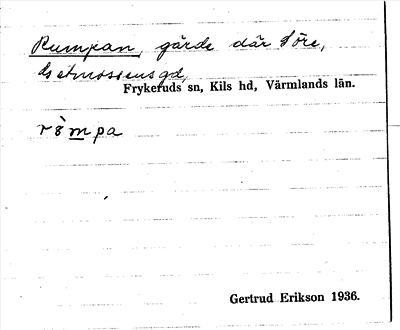 Rumpan, gärde där före,
gd,
Frykeruds sn, Kils hd, Värmlands län.
rumpa
Gertrud Erikson 1936.